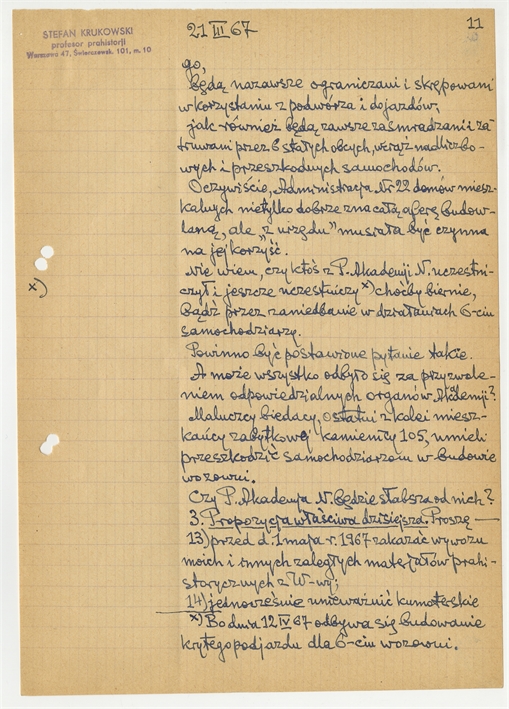 STEFAN KRUKOWSKI
profesor prehistorji
Warszawa 47, Świerczewsk. 101, m. 10
21 III 67
11
go,
będą nazawsze ograniczani i skrępowani
w korzystaniu z podwórza i dojazdów;
jak również będą zawsze zasmradzani i za-
truwani przez 6 stałych obcych, wciąż nadliczbo-
wych i przeszkodnych samochodów.
Oczywiście, Administracja Nr 22 domów miesz-
kalnych nietylko dobrze zna całą aferę budow-
laną, ale „z urzędu” musiała być czynna
na jej korzyść.
Nie wiem, czy ktoś z P. Akademji N. uczestni-
czył i jeszcze uczestniczy x) choćby biernie,
bądź przez zaniedbanie w działaniach 6-ciu
samochodziarzy.
x)
Powinno być postawione pytanie takie.
A może wszystko odbyło się za przyzwole-
niem odpowiedzialnych organów Akademji?
Maluczcy biedacy, ostatni z kolei miesz-
kańcy zabytkowej kamienicy 105, umieli
przeszkodzić samochodziarzom w budowie
wozowni.
Czy P. Akademja N. będzie słabsza od nich?
3. Propozycja właściwa dzisiejsza. Proszę —
13) przed d. 1 maja r. 1967 zakazać wywozu
moich i innych zaległych materjałów prahi-
storycznych z W-wy;
14) jednocześnie unieważnić kumoterskie
x) Bo dnia 12 IV 67 odbywa się budowanie
krytego podjazdu dla 6-ciu wozowni.